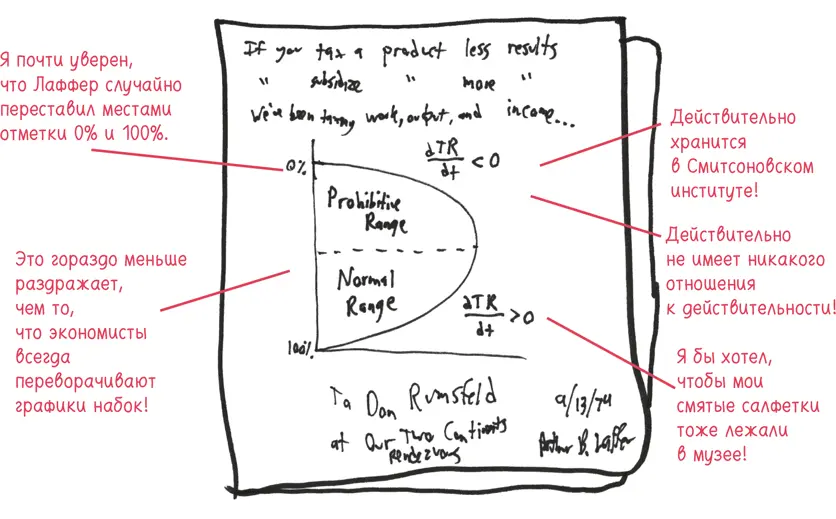 If you tax a product less results
" subsidize " more "
We've been taxing work, output, and income...
Я почти уверен,
что Лаффер случайно
переставил местами
отметки 0% и 100%.
Это гораздо меньше
раздражает,
чем то,
что экономисты
всегда
переворачивают
графики набок!
0%
Prohibitive
Range
Normal
Range
100%
dTR
dt < 0
dTR
dt > 0
Действительно
хранится
в Смитсоновском
институте!
Действительно
не имеет никакого
отношения
к действительности!
Я бы хотел,
чтобы мои
смятые салфетки
тоже лежали
в музее!
To Don Rumsfeld
at Our Two Continents
Rendezvous
9/13/74
Arthur B. Laffer